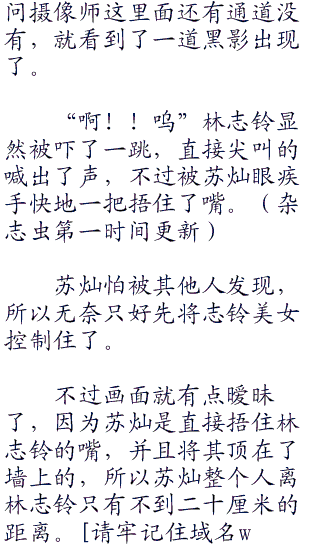 问摄像师这里面还有通道没
有，就看到了一道黑影出现
了。
“啊！！呜”林志铃显
然被吓了一跳，直接尖叫的
喊出了声，不过被苏灿眼疾
手快地一把捂住了嘴。（杂
志虫第一时间更新）
苏灿怕被其他人发现，
所以无奈只好先将志铃美女
控制住了。
不过画面就有点暧昧
了，因为苏灿是直接捂住林
志铃的嘴，并且将其顶在了
墙上的，所以苏灿整个人离
林志铃只有不到二十厘米的
距离。[请牢记住域名w